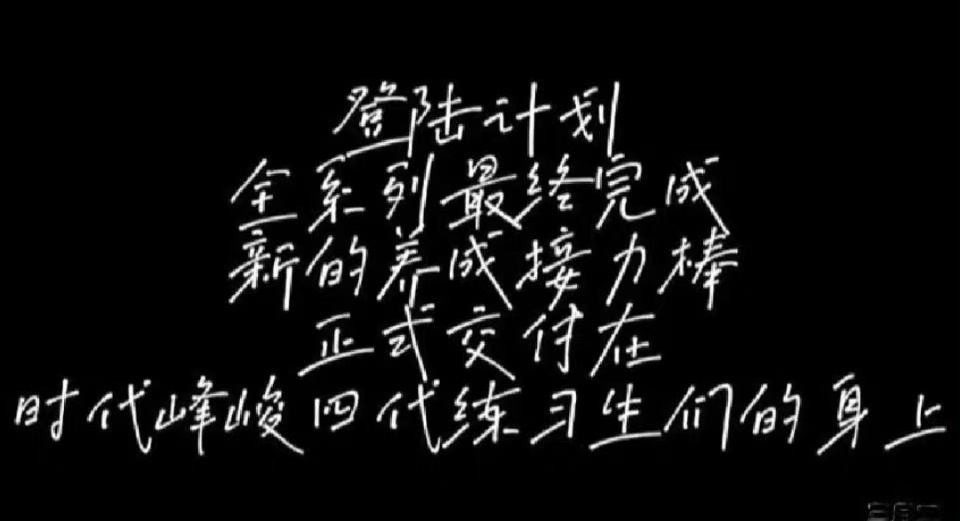 登陆计划
全系列最终完成
新的养成接力棒
正式交付在
时代峰峻四代练习生们的身上